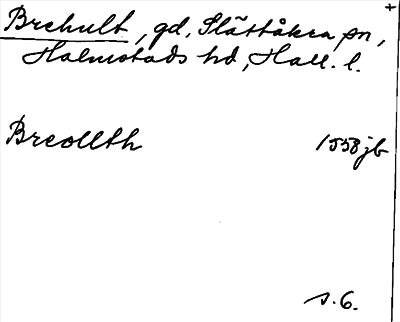 Brehult, gd, Slättåkra sn,
Halmstads hd, Hall. l.
Breollth 1558 jb
s. 6.